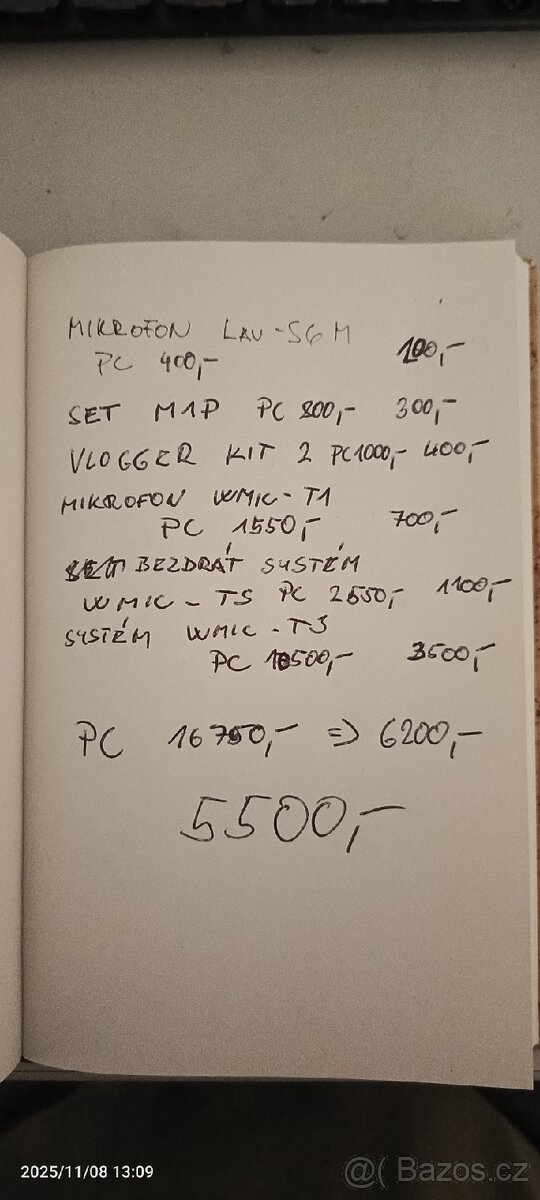 MIKROFON LAV-SGM
PC 400,- 200,-
SET M1P PC 800,- 300,-
VLOGGER KIT 2 PC 1000,- 400,-
MIKROFON WMIC-T1
PC 1550,- 700,-
BEZDRÁT SYSTÉM
WMIC-TS PC 2550,- 1100,-
SYSTÉM WMIC-T3
PC 10500,- 3500,-
PC 16750,- => 6200,-
5500,-
2025/11/08 13:09
@( Bazos.cz